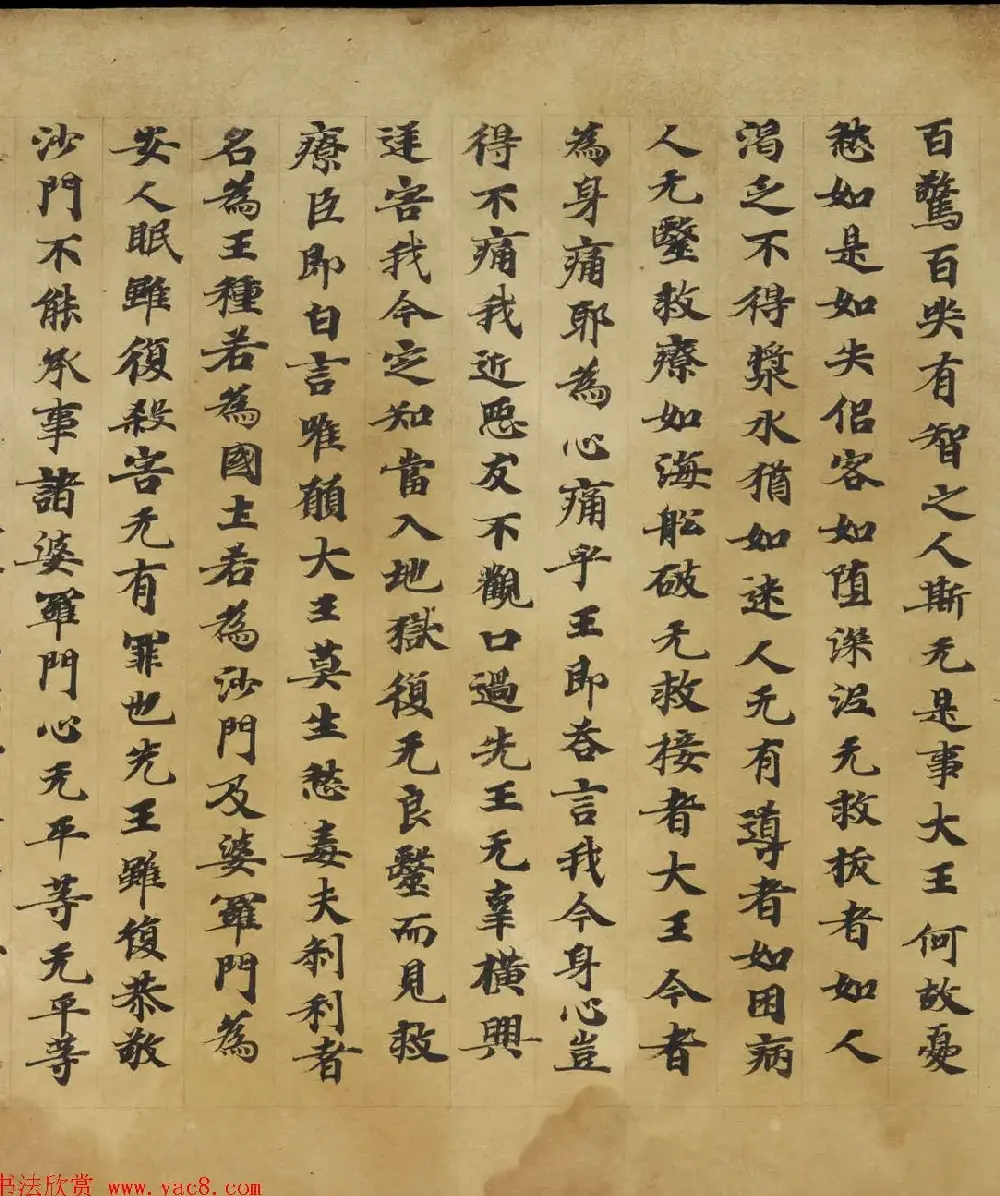 百驚百喪有智之人斯无是事大王何故憂
愁如是如失侶客如堕深泥无救拔者如人
渴乏不得漿水猶如迷人无有導者如困病
人无毉救療如海舩破无救接者大王今者
為身痛耶為心痛乎王即荅言我今身心豈
得不痛我近惡友不觀口過先王无辜橫興
逆害我今定知當入地獄復无良毉而見救
療臣即白言唯願大王莫生愁毒夫刹利者
名為王種若為國土若為沙門及婆羅門為
安人民雖復殺害无有罪也先王雖復恭敬
沙門不能承事諸婆羅門心无平等无平等
书法欣赏 www.yac8.com